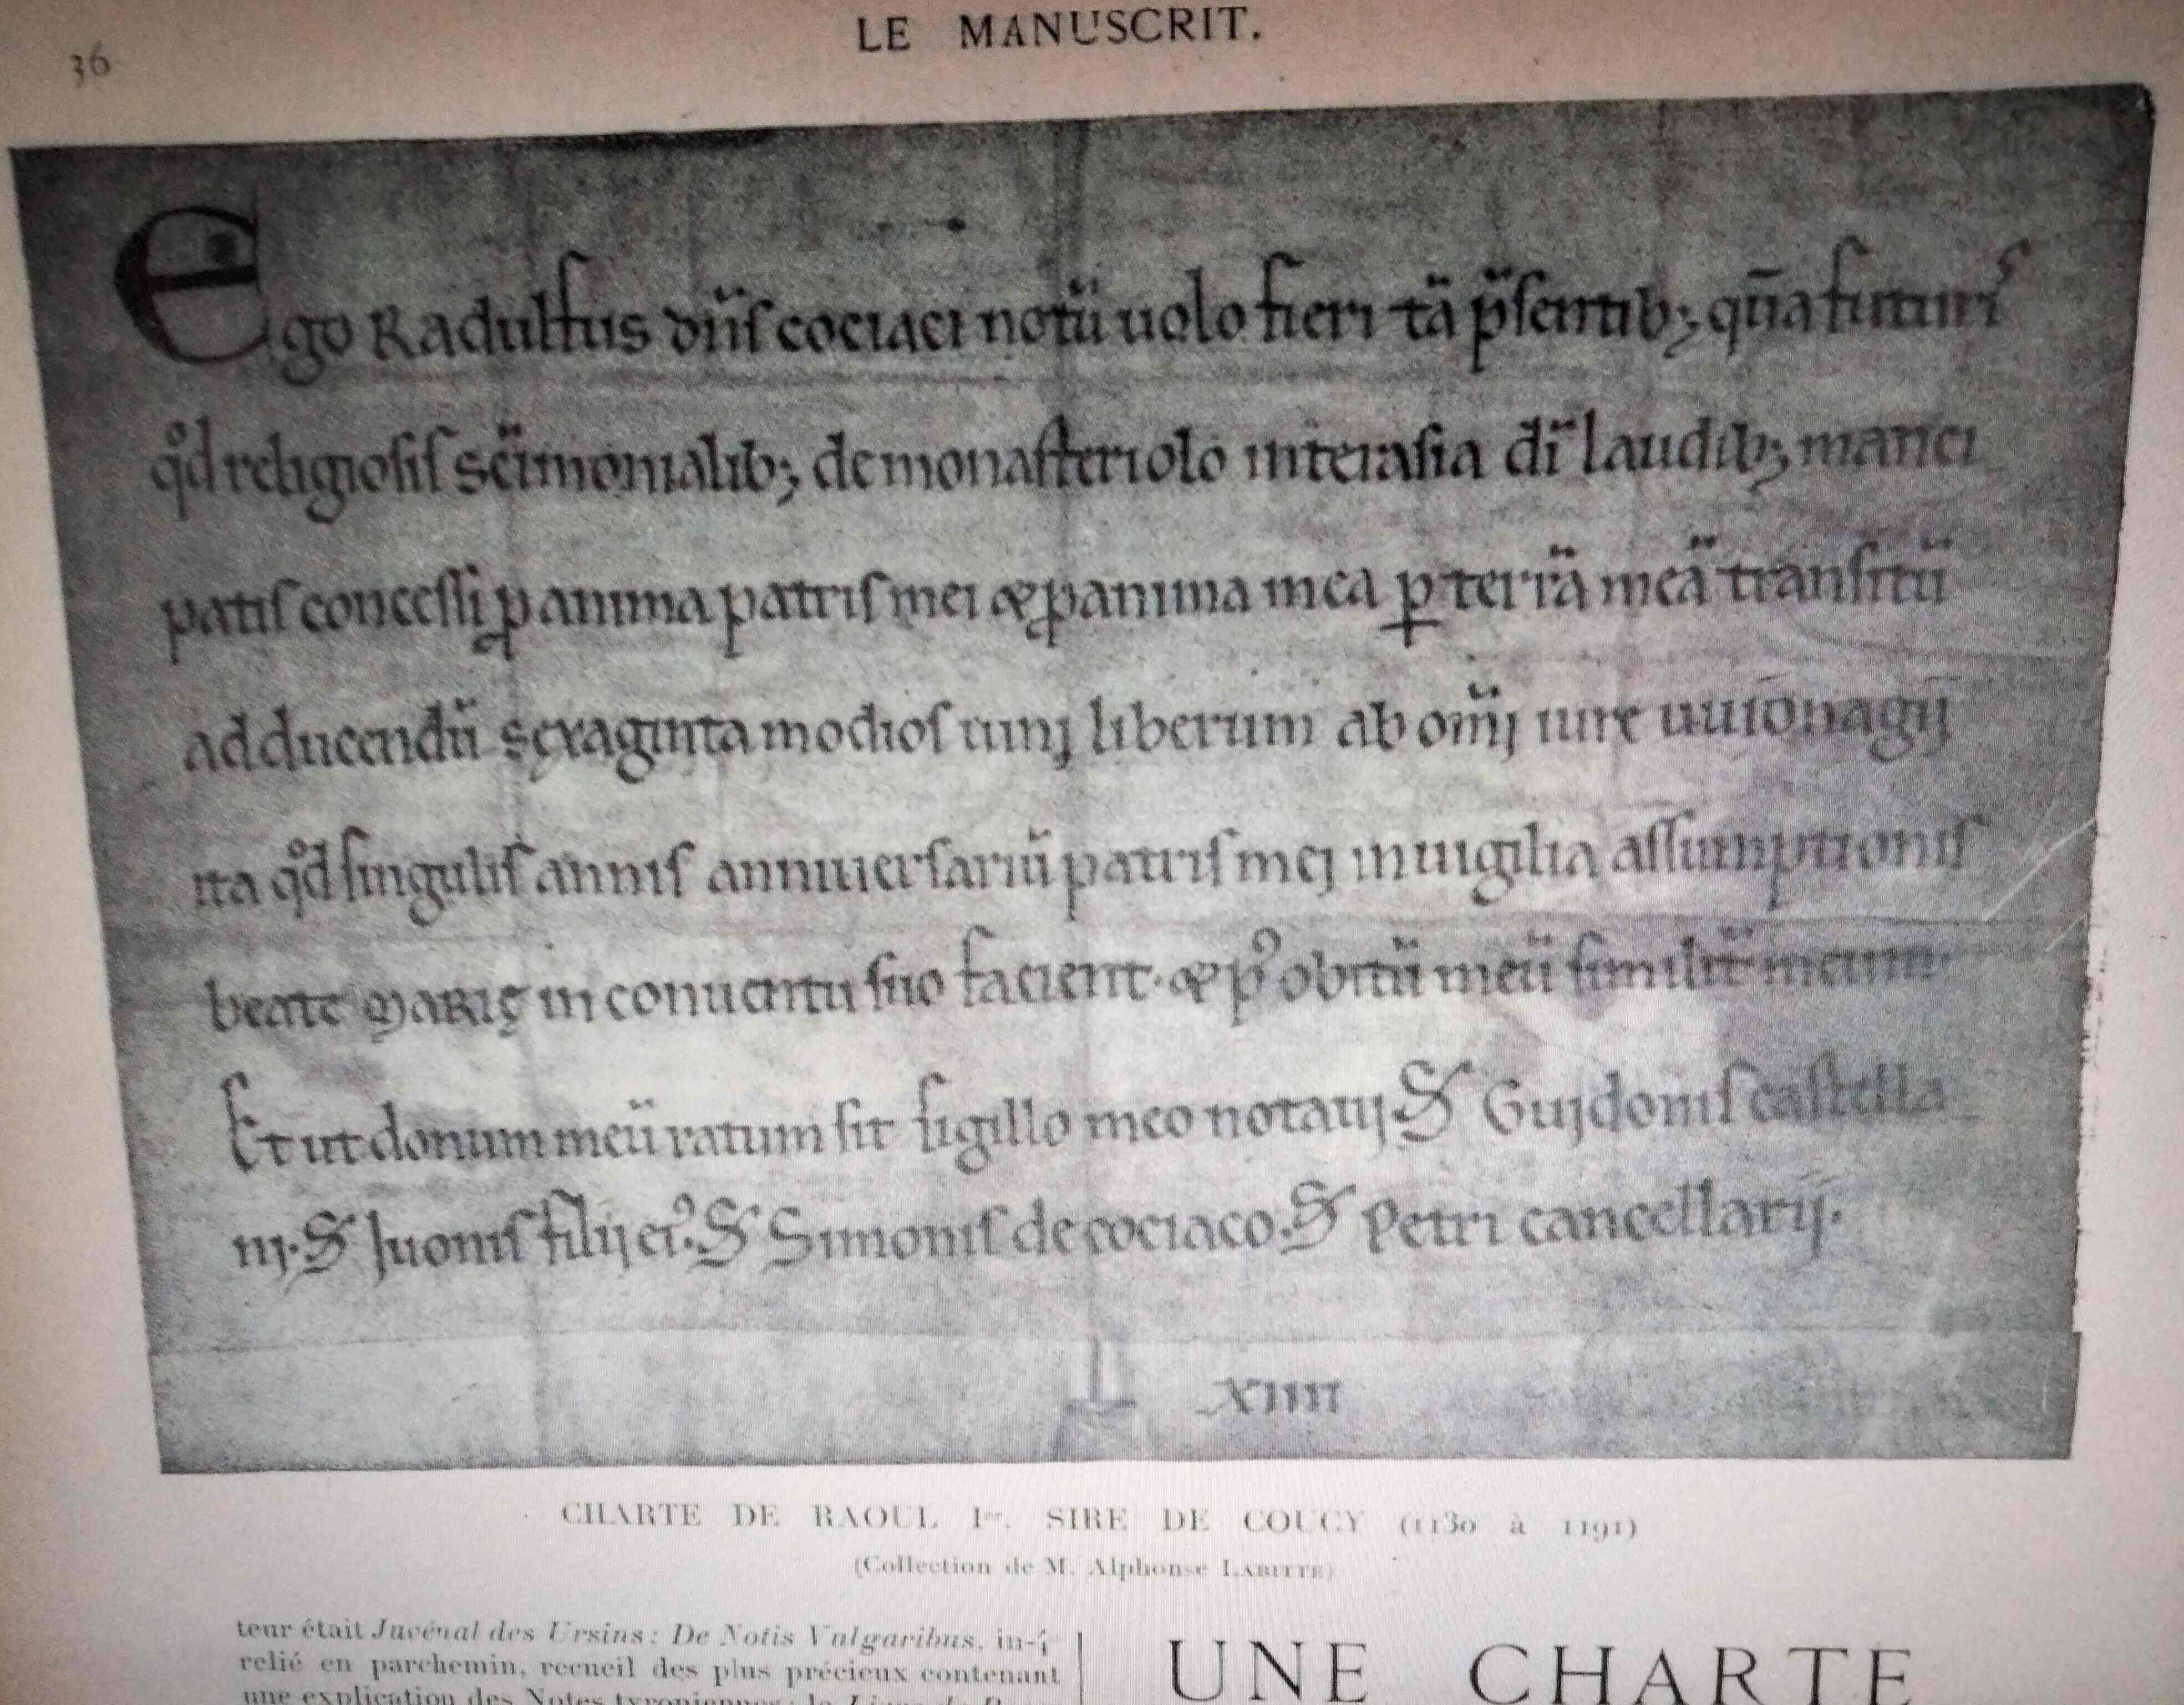 36
LE MANUSCRIT.
Ego Radulfus dn̄s cociaci notū uolo fieri tā p̄sentib; qn̄a futuris
qd̊ religiosis sc̄imonialib; de monasteriolo inter asia dī laudib; manci
patis concessi ꝓ anima patris mei & ꝓ anima mea ꝑ terrā meā transitū
adducendū sexaginta modios uinj liberum ab om̄j iure uuionagij
ita qd̊ singulis annis anniuersariū patris mej in uigilia assumptionis
beate Marię in conuentu suo facient. & pꝰ obitū meū similit̄ meum.
Et ut donum meū ratum sit sigillo meo notauj. S Guidonis castella
nj. S Juonis filij eiꝰ. S Simonis de cociaco. S Petri cancellarij.
XIIII
CHARTE DE RAOUL Ier, SIRE DE COUCY (1130 à 1191)
(Collection de M. Alphonse LABITTE)
teur était Juvénal des Ursins: De Notis Vulgaribus, in-4
relié en parchemin, recueil des plus précieux contenant
une explication des Notes tyroniennes; le
UNE CHARTE